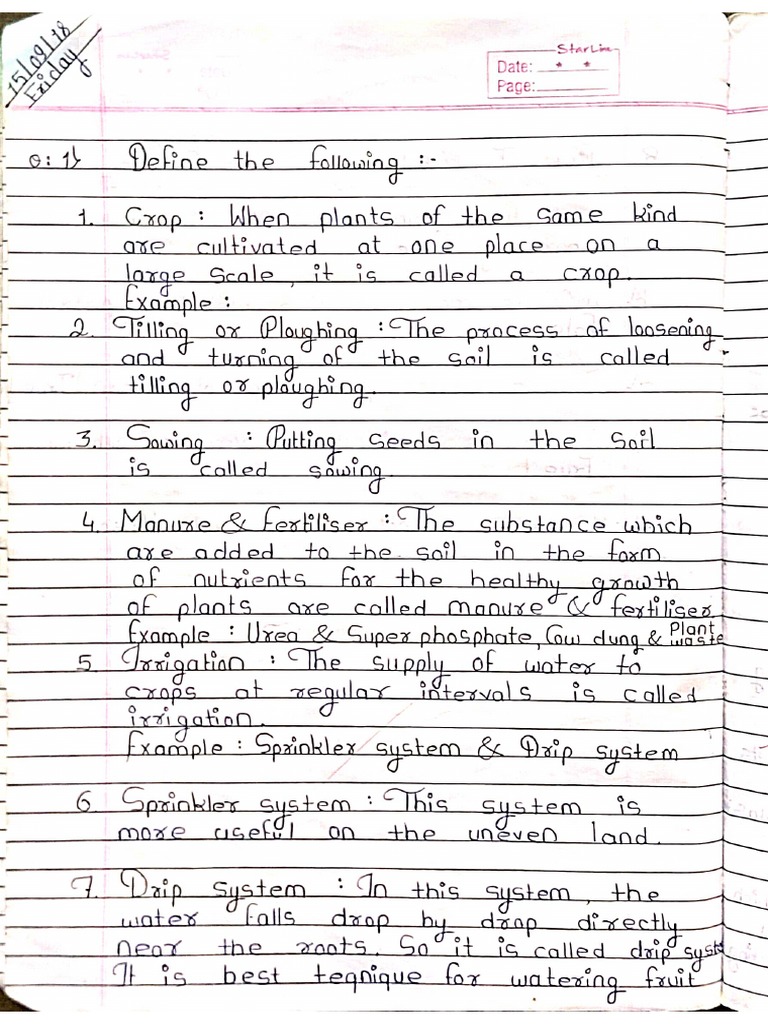 15/09/18
Friday
StarLine
Date:
Page:
Q:1} Define the following :-
1. Crop : When plants of the same kind
are cultivated at one place on a
large scale, it is called a crop.
Example :
2. Tilling or Ploughing : The process of loosening
and turning of the soil is called
tilling or ploughing.
3. Sowing : Putting seeds in the soil
is called sowing.
4. Manure & Fertiliser : The substance which
are added to the soil in the form
of nutrients for the healthy growth
of plants are called manure & fertiliser
Example : Urea & Super phosphate, Cow dung & Plant waste
5. Irrigation : The supply of water to
crops at regular intervals is called
irrigation.
Example : Sprinkler system & Drip system
6. Sprinkler system : This system is
more useful on the uneven land.
7. Drip system : In this system, the
water falls drop by drop directly
near the roots. So it is called drip syst
It is best teqnique for watering fruit